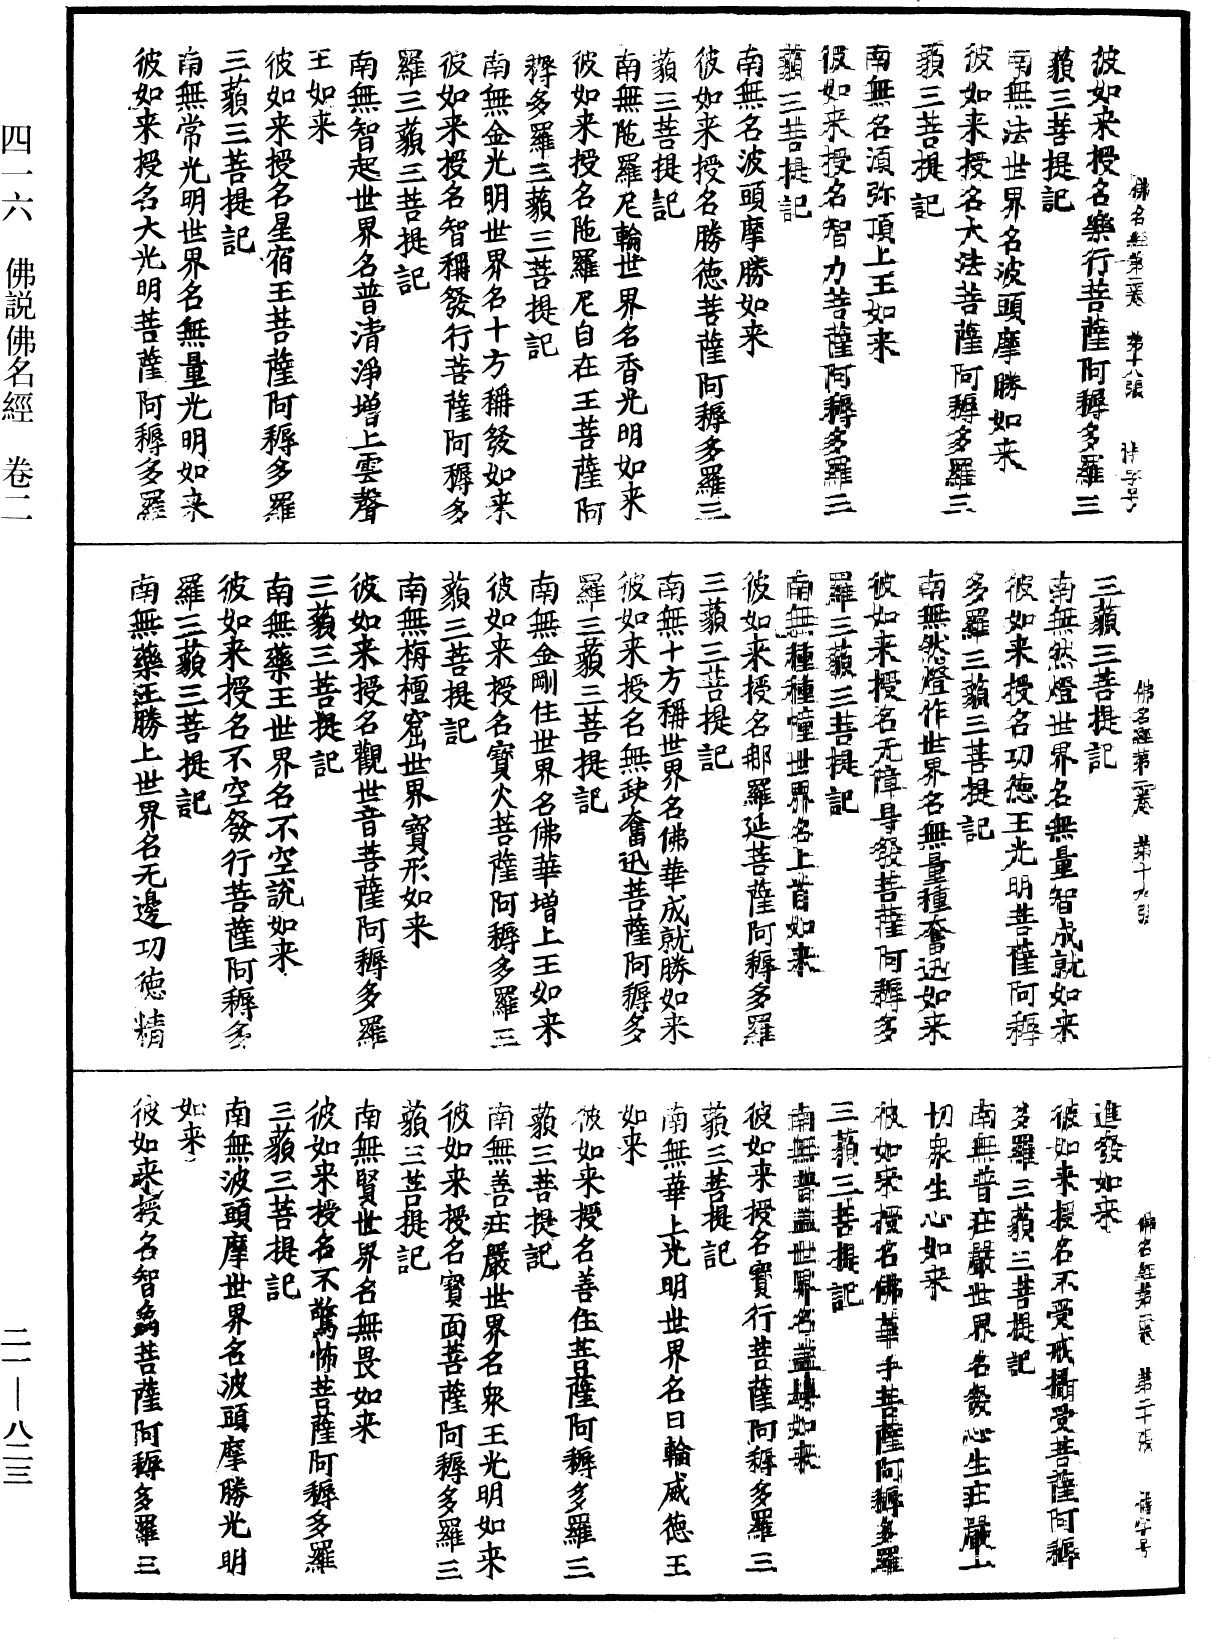 佛名經第二卷　第十八張　詩字号
彼如来授名樂行菩薩阿耨多羅三
藐三菩提記
南無法世界名波頭摩勝如来
彼如来授名大法菩薩阿耨多羅三
藐三菩提記
南無名湏弥頂上王如来
彼如来授名智力菩薩阿耨多羅三
藐三菩提記
南無名波頭摩勝如来
彼如来授名勝德菩薩阿耨多羅三
藐三菩提記
南無陁羅尼輪世界名香光明如来
彼如来授名陁羅尼自在王菩薩阿
耨多羅三藐三菩提記
南無金光明世界名十方稱發如来
彼如来授名智稱發行菩薩阿耨多
羅三藐三菩提記
南無智起世界名普清淨增上雲聲
王如来
彼如来授名星宿王菩薩阿耨多羅
三藐三菩提記
南無常光明世界名無量光明如来
彼如来授名大光明菩薩阿耨多羅
佛名經第二卷　第十九張
三藐三菩提記
南無然燈世界名無量智成就如来
彼如来授名功德王光明菩薩阿耨
多羅三藐三菩提記
南無然燈作世界名無量種奮迅如来
彼如来授名无障㝵發菩薩阿耨多
羅三藐三菩提記
南無種種幢世界名上首如来
彼如来授名那羅延菩薩阿耨多羅
三藐三菩提記
南無十方稱世界名佛華成就勝如来
彼如来授名無䟽奮迅菩薩阿耨多
羅三藐三菩提記
南無金剛住世界名佛華增上王如来
彼如来授名寶火菩薩阿耨多羅三
藐三菩提記
南無栴檀窟世界寶形如来
彼如来授名觀世音菩薩阿耨多羅
三藐三菩提記
南無藥王世界名不空說如来
彼如来授名不空發行菩薩阿耨多
羅三藐三菩提記
南無藥王勝上世界名无邊功德精
佛名經第二卷　第二十張　詩字号
進發如来
彼如来授名不受戒攝受菩薩阿耨
多羅三藐三菩提記
南無普莊嚴世界名發心生莊嚴一
切衆生心如来
彼如来授名佛華手菩薩阿耨多羅
三藐三菩提記
南無普蓋世界名蓋如来
彼如来授名寶行菩薩阿耨多羅三
藐三菩提記
南無華上光明世界名日輪威德王
如来
彼如来授名善住菩薩阿耨多羅三
藐三菩提記
南無善莊嚴世界名衆王光明如来
彼如来授名寶面菩薩阿耨多羅三
藐三菩提記
南無賢世界名無畏如来
彼如来授名不驚怖菩薩阿耨多羅
三藐三菩提記
南無波頭摩世界名波頭摩勝光明
如来
彼如来授名智菩薩阿耨多羅三
四一六　佛説佛名經　卷二
二一—八二三